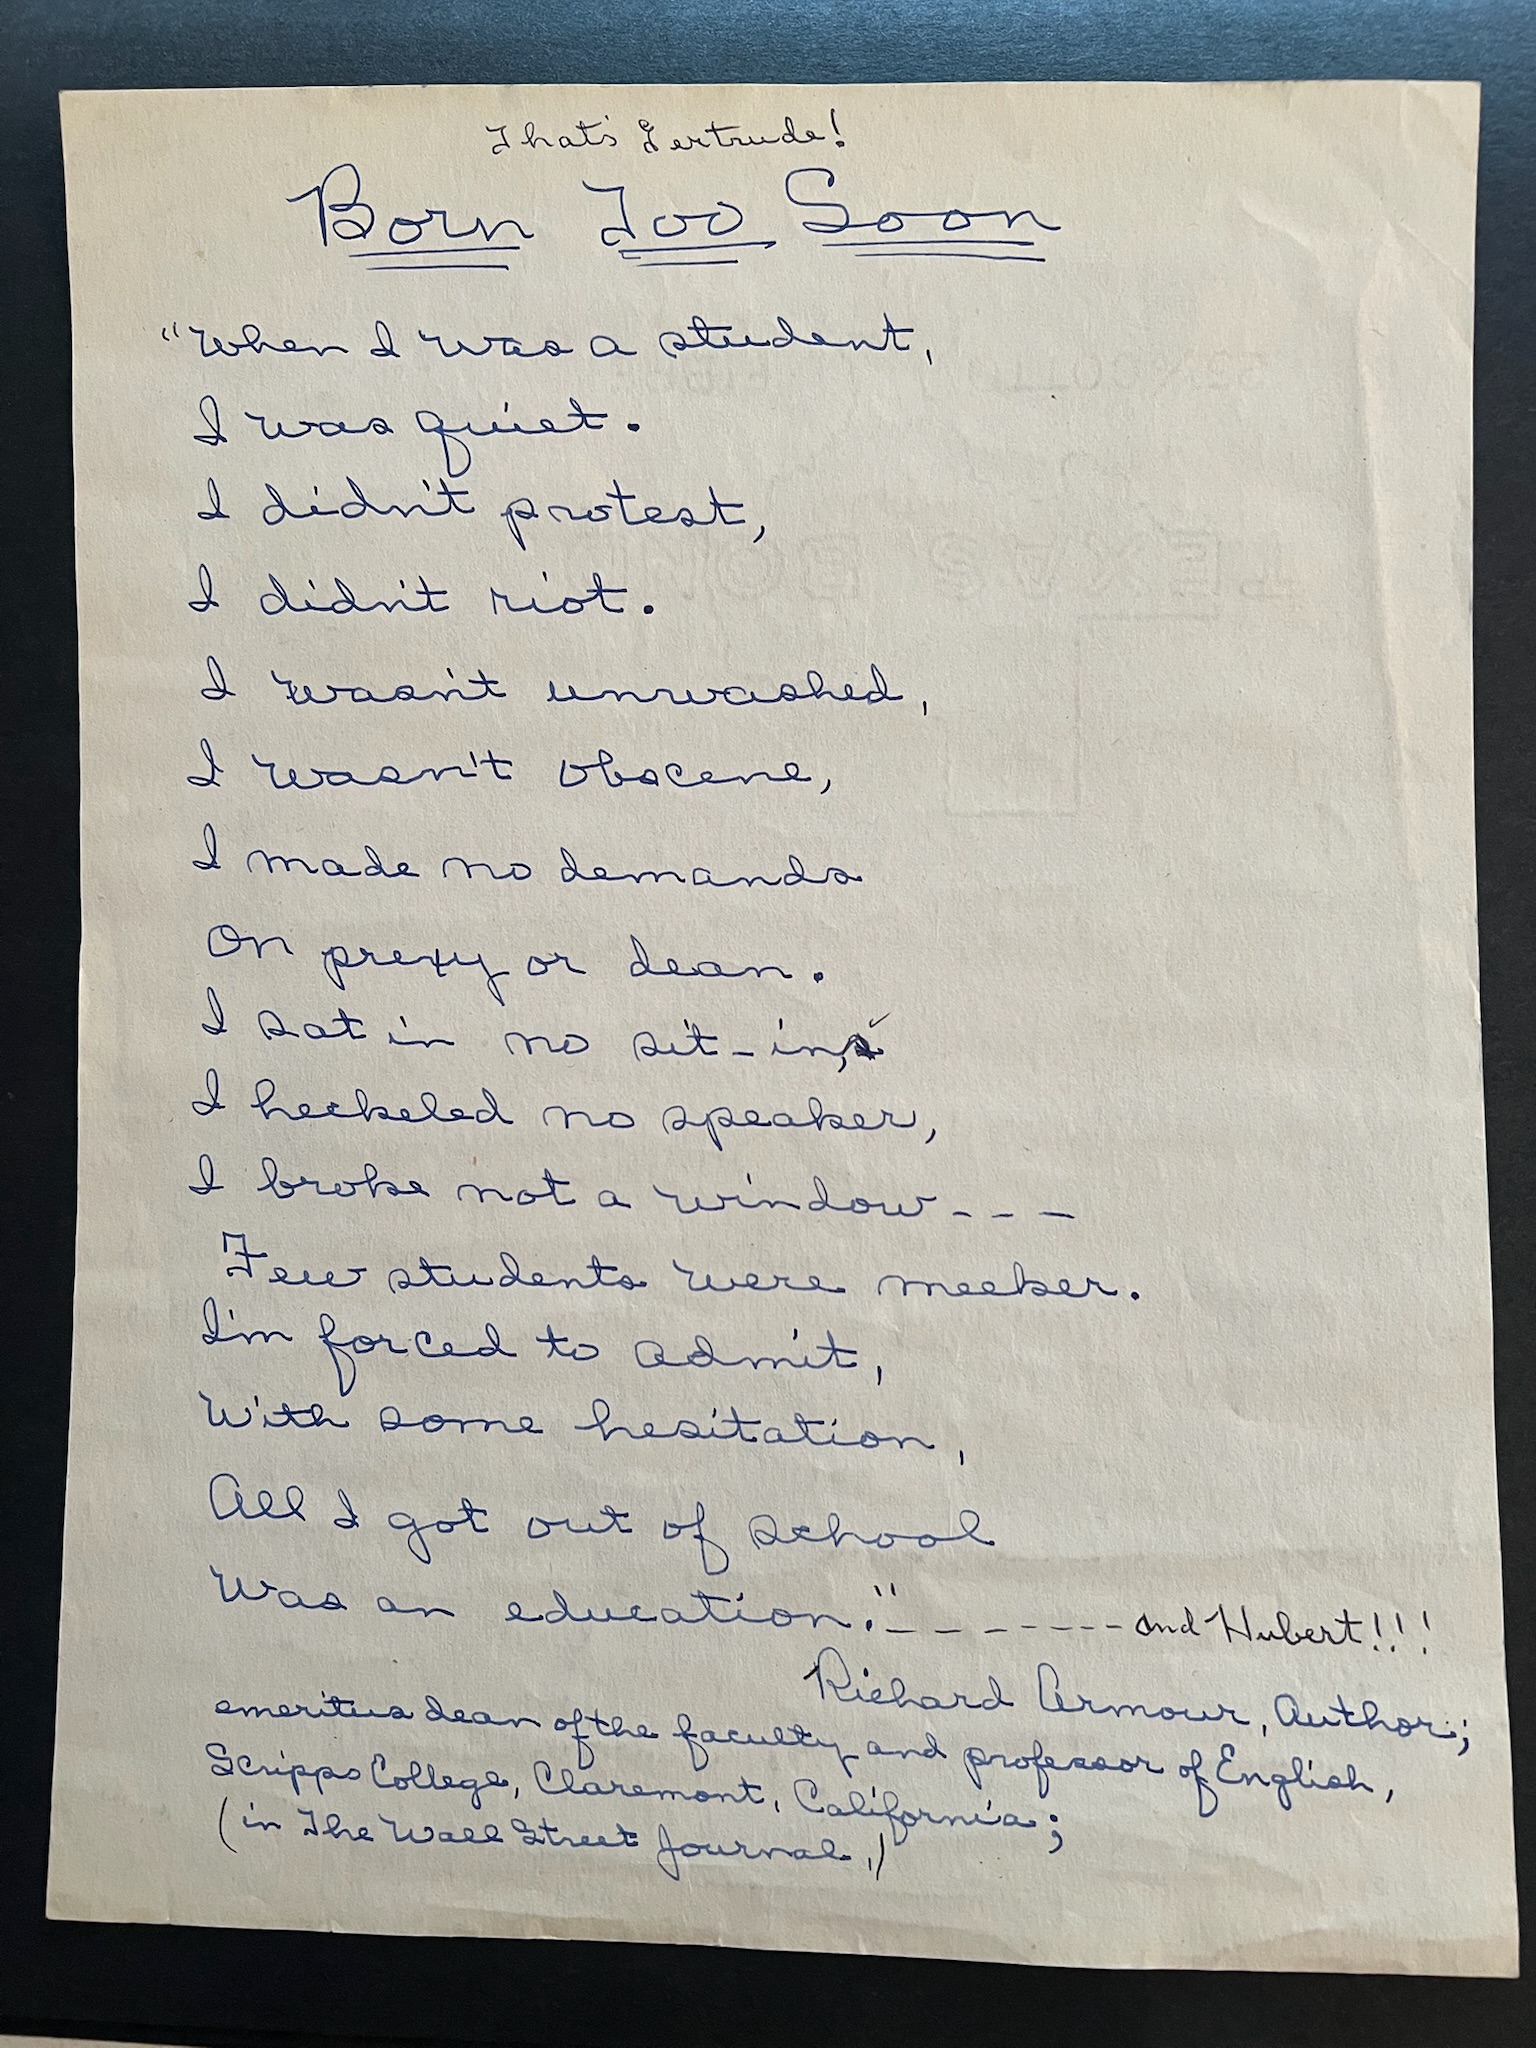 That's Gertrude!
Born Too Soon
"When I was a student,
I was quiet.
I didn't protest,
I didn't riot.
I wasn't unwashed,
I wasn't obscene,
I made no demands
On prexy or dean.
I sat in no sit-in,
I heckeled no speaker,
I broke not a window - - -
Few students were meeker.
I'm forced to admit,
With some hesitation,
All I got out of school
Was an education." - - - - - - - - and Hubert!!!
Richard Armour, Author;
emeritus dean of the faculty and professor of English,
Scripps College, Claremont, California;
(in The Wall Street Journal,)